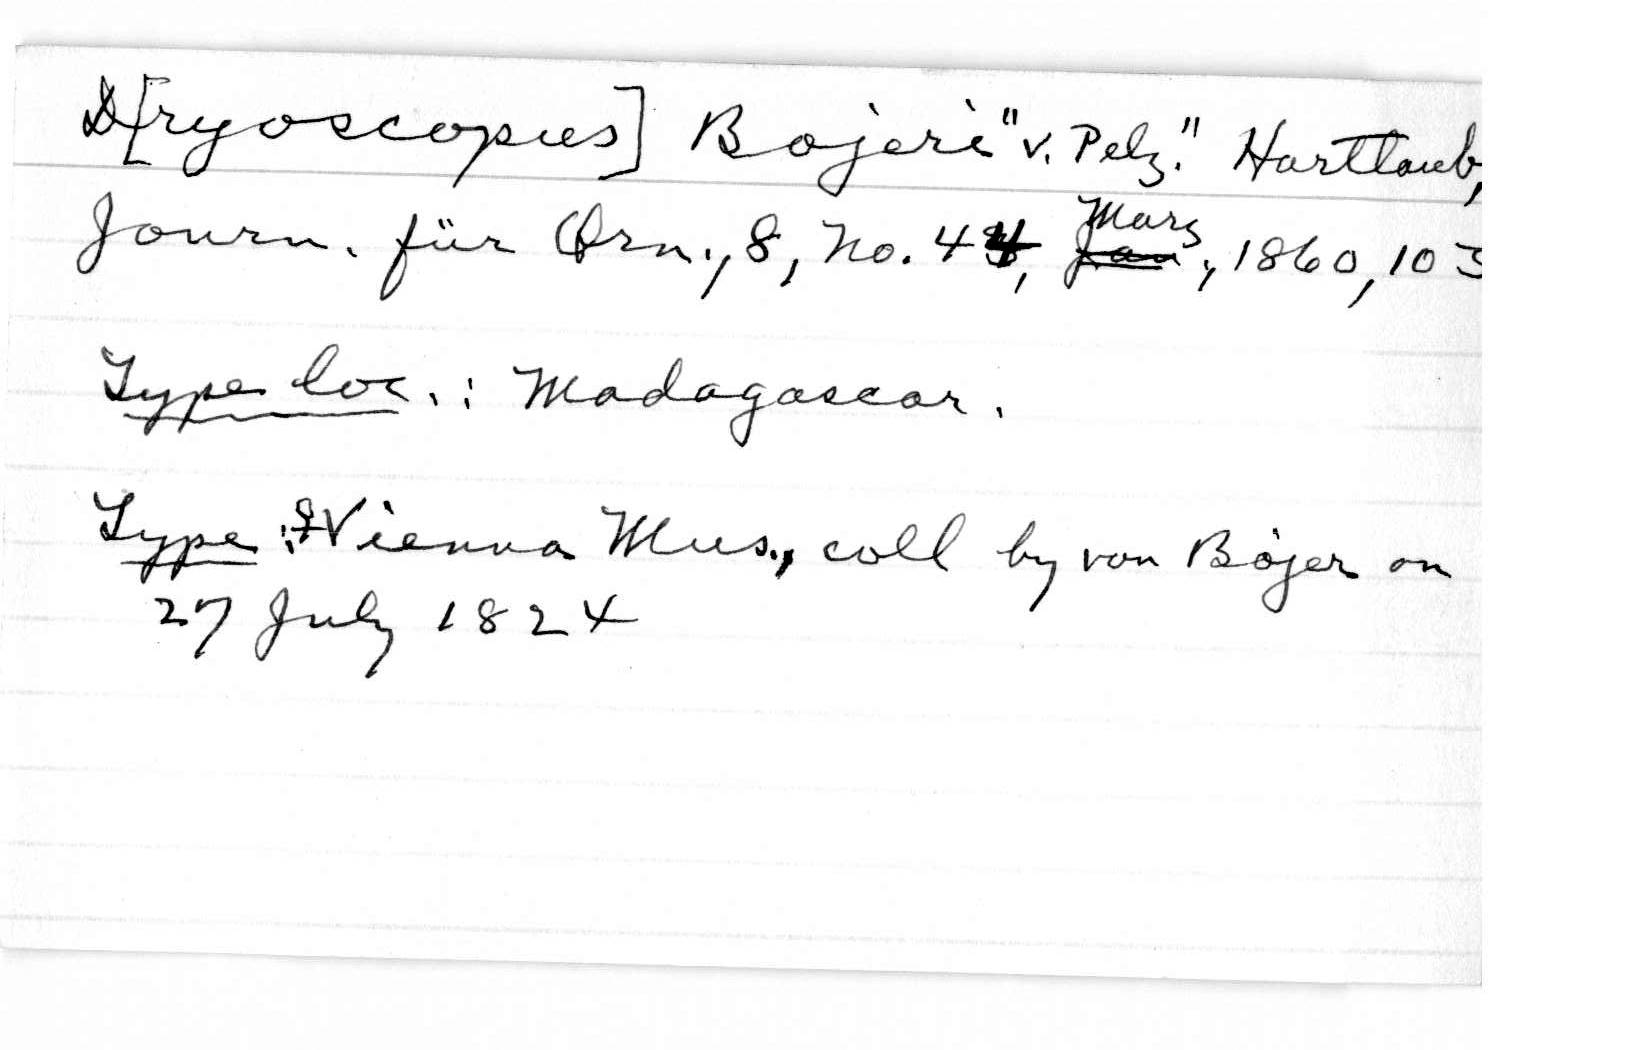 D[ryoscopus] Bojeri "v. Pelz." Hartlaub,
Journ. für Orn., 8, No. 44, Marz, 1860, 103
Type loc.: Madagascar.
Type: ♀ Vienna Mus., coll by von Bojer on
27 July 1824